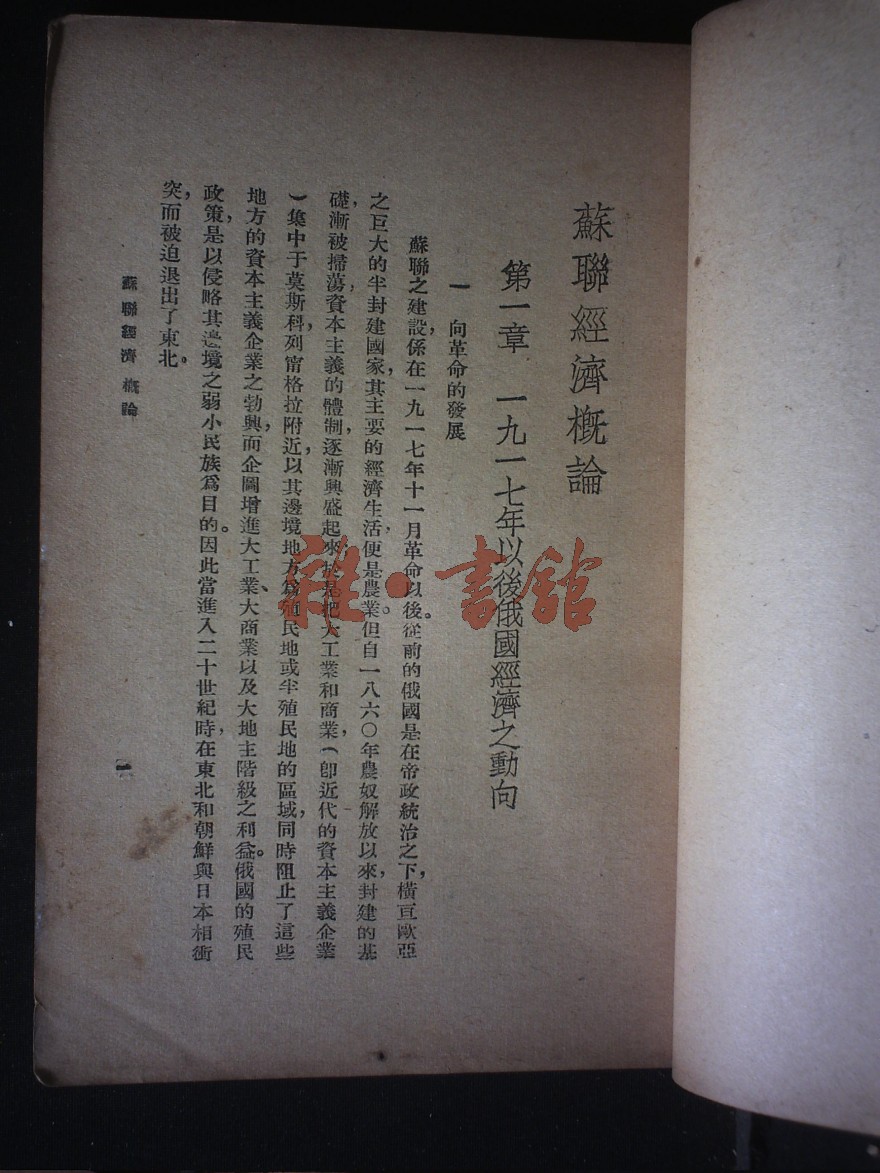 蘇聯經濟概論
第一章　一九一七年以後俄國經濟之動向
一　向革命的發展
蘇聯之建設，係在一九一七年十一月革命以後。從前的俄國是在帝政統治之下，橫亘歐亞
之巨大的半封建國家，其主要的經濟生活，便是農業。但自一八六〇年農奴解放以來，封建的基
礎，漸被掃蕩，資本主義的體制，逐漸興盛起來，於是把大工業和商業，（卽近代的資本主義企業
）集中于莫斯科，列甯格拉附近，以其邊境地方爲殖民地或半殖民地的區域，同時阻止了這些
地方的資本主義企業之勃興，而企圖增進大工業、大商業以及大地主階級之利益。俄國的殖民
政策，是以侵略其邊境之弱小民族爲目的。因此當進入二十世紀時，在東北和朝鮮與日本相衝
突，而被迫退出了東北。
蘇聯經濟概論
一
雜·書舘